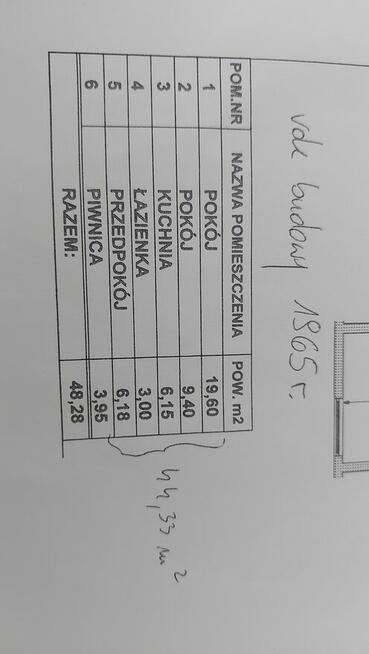 rok budowy 1965 r.
POM.NR NAZWA POMIESZCZENIA POW. m2
1 POKÓJ 19,60
2 POKÓJ 9,40
3 KUCHNIA 6,15
4 ŁAZIENKA 3,00
5 PRZEDPOKÓJ 6,18
6 PIWNICA 3,95
RAZEM: 48,28
44,33 m2